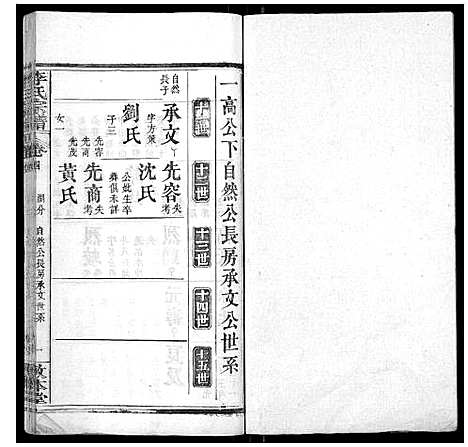 一高公下自然公長房承文公世系
十一世
十二世
十三世
十四世
十五世
自然長子
承文
字方策
劉氏
子三
先容
先商
先茂
女一
先容失考
沈氏
公妣生卒
葬俱未詳
先商失考
黃氏
李氏宗譜
卷四
潤分
自然公長房承文世系
一
敦本堂